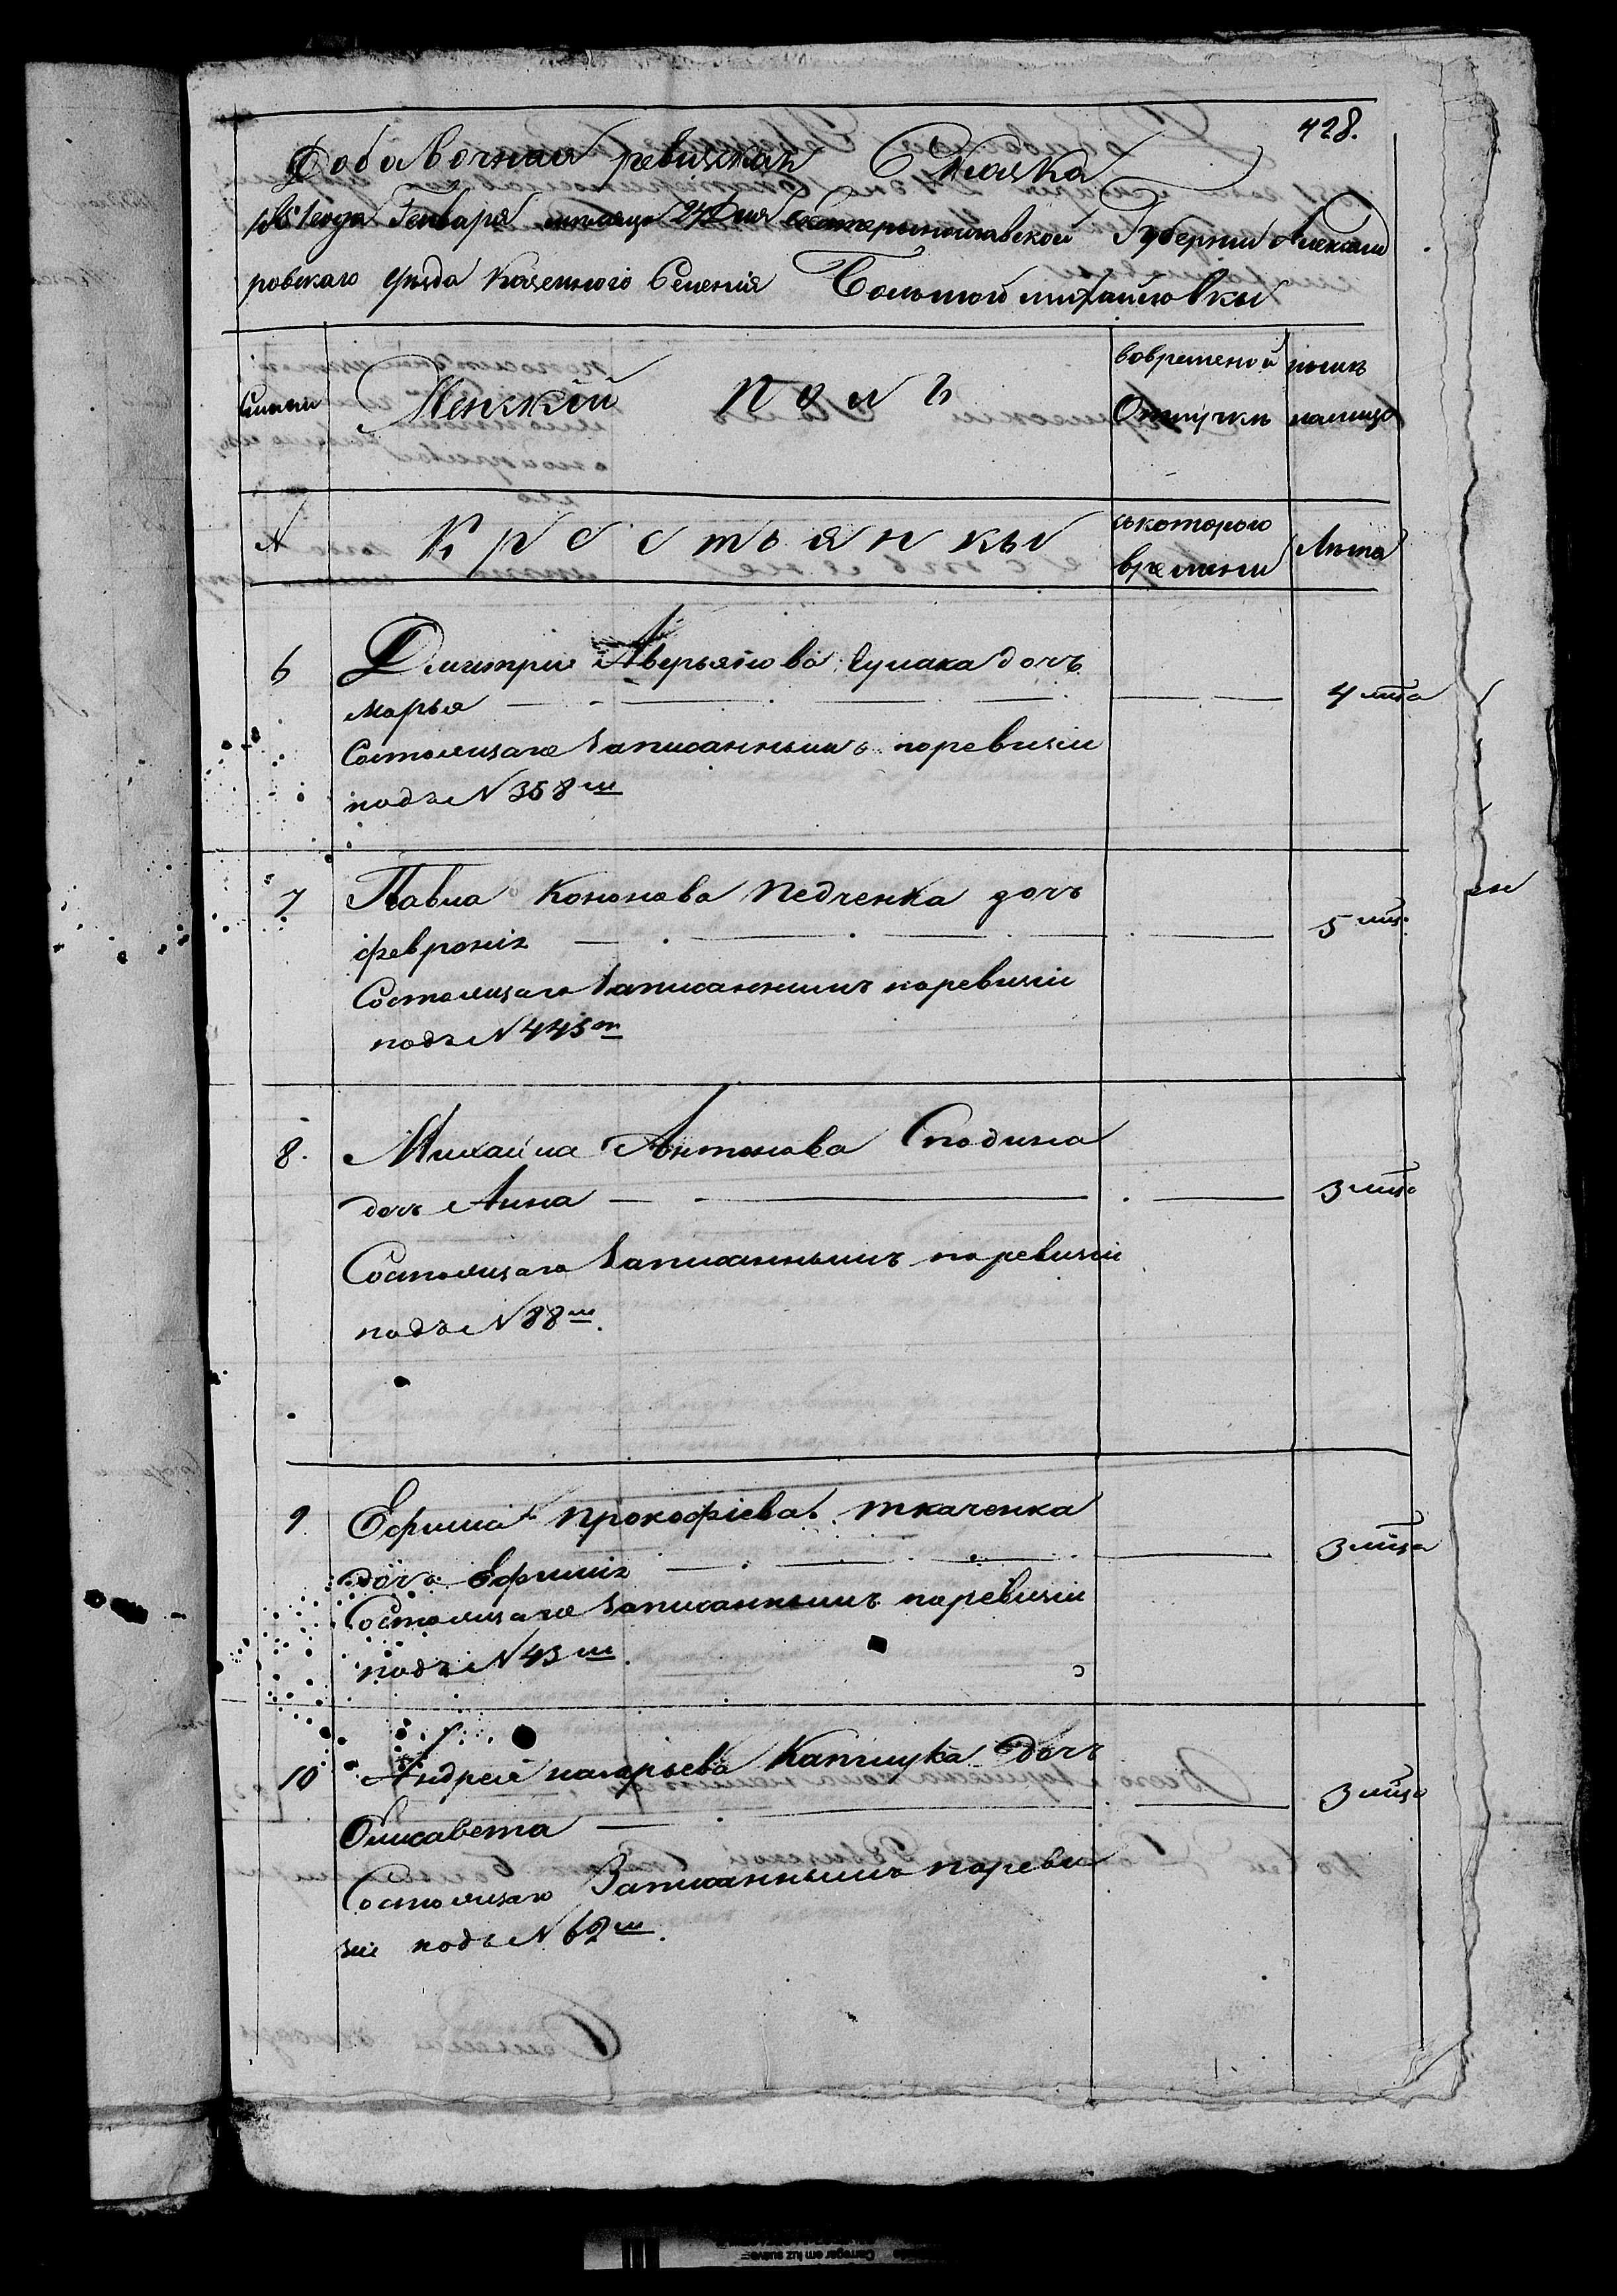 428.
Добавочная ревизская Сказка
1851 года Генваря месяца 27 дня Екатеринославской Губернии Александ
ровскаго уезда Казеннаго Селения Большой михайловки
Семьи
Женскій полъ
вовременой
Отлучкѣ
ныне
налицо
N
Крестьянки
скоторого
времени
Лета
6
Дмитрия Аверьянова Чумака дочь
марья
4 лета
Состоящаго Записаннымъ поревизии
подъ N 358 м
7
Павла Кононова Педченка дочь
феврония
5 летъ
Состоящаго Записаннимъ поревизии
подъ N 445 м
8.
Михайла Антонова Сподина
дочь Анна
3 лета
Состоящаго Записаннымъ поревизии
подъ N 88 м.
9
Ефима прокофіева ткаченка
дочь Ефимия
3 лета
Состоящаго записаннымъ поревизии
подъ N 43 м
10
Андрея Дочь
Елисавета
3 лета
Состоящаго Записаннымъ пореви
зіи подъ N 62 м.